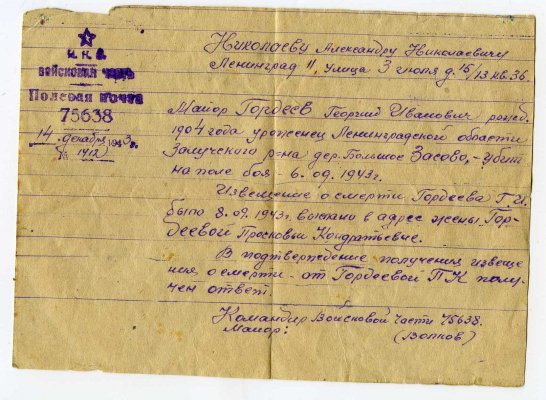 Н.К.О.
ВОЙСКОВАЯ ЧАСТЬ
Полевая почта
75638
14 декабря 1943г.
№ 1412
Николаеву Александру Николаевичу
Ленинград 11, улица 3 июля д. 15/13 кв. 36.
Майор Гордеев Георгий Иванович рожд.
1904 года уроженец Ленинградской области
р-на дер. Большое Засово, - убит
на поле боя - 6.09.1943г.
Извещение о смерти Гордеева Г.И.
было 8.09.1943г. выслано в адрес жены Гор-
деевой Просковьи Кондратьевне.
В подтверждение получения извеще
ния о смерти - от Гордеевой П.К. полу-
чен ответ.
Командир Войсковой части 75638.
Майор:
(Волков)